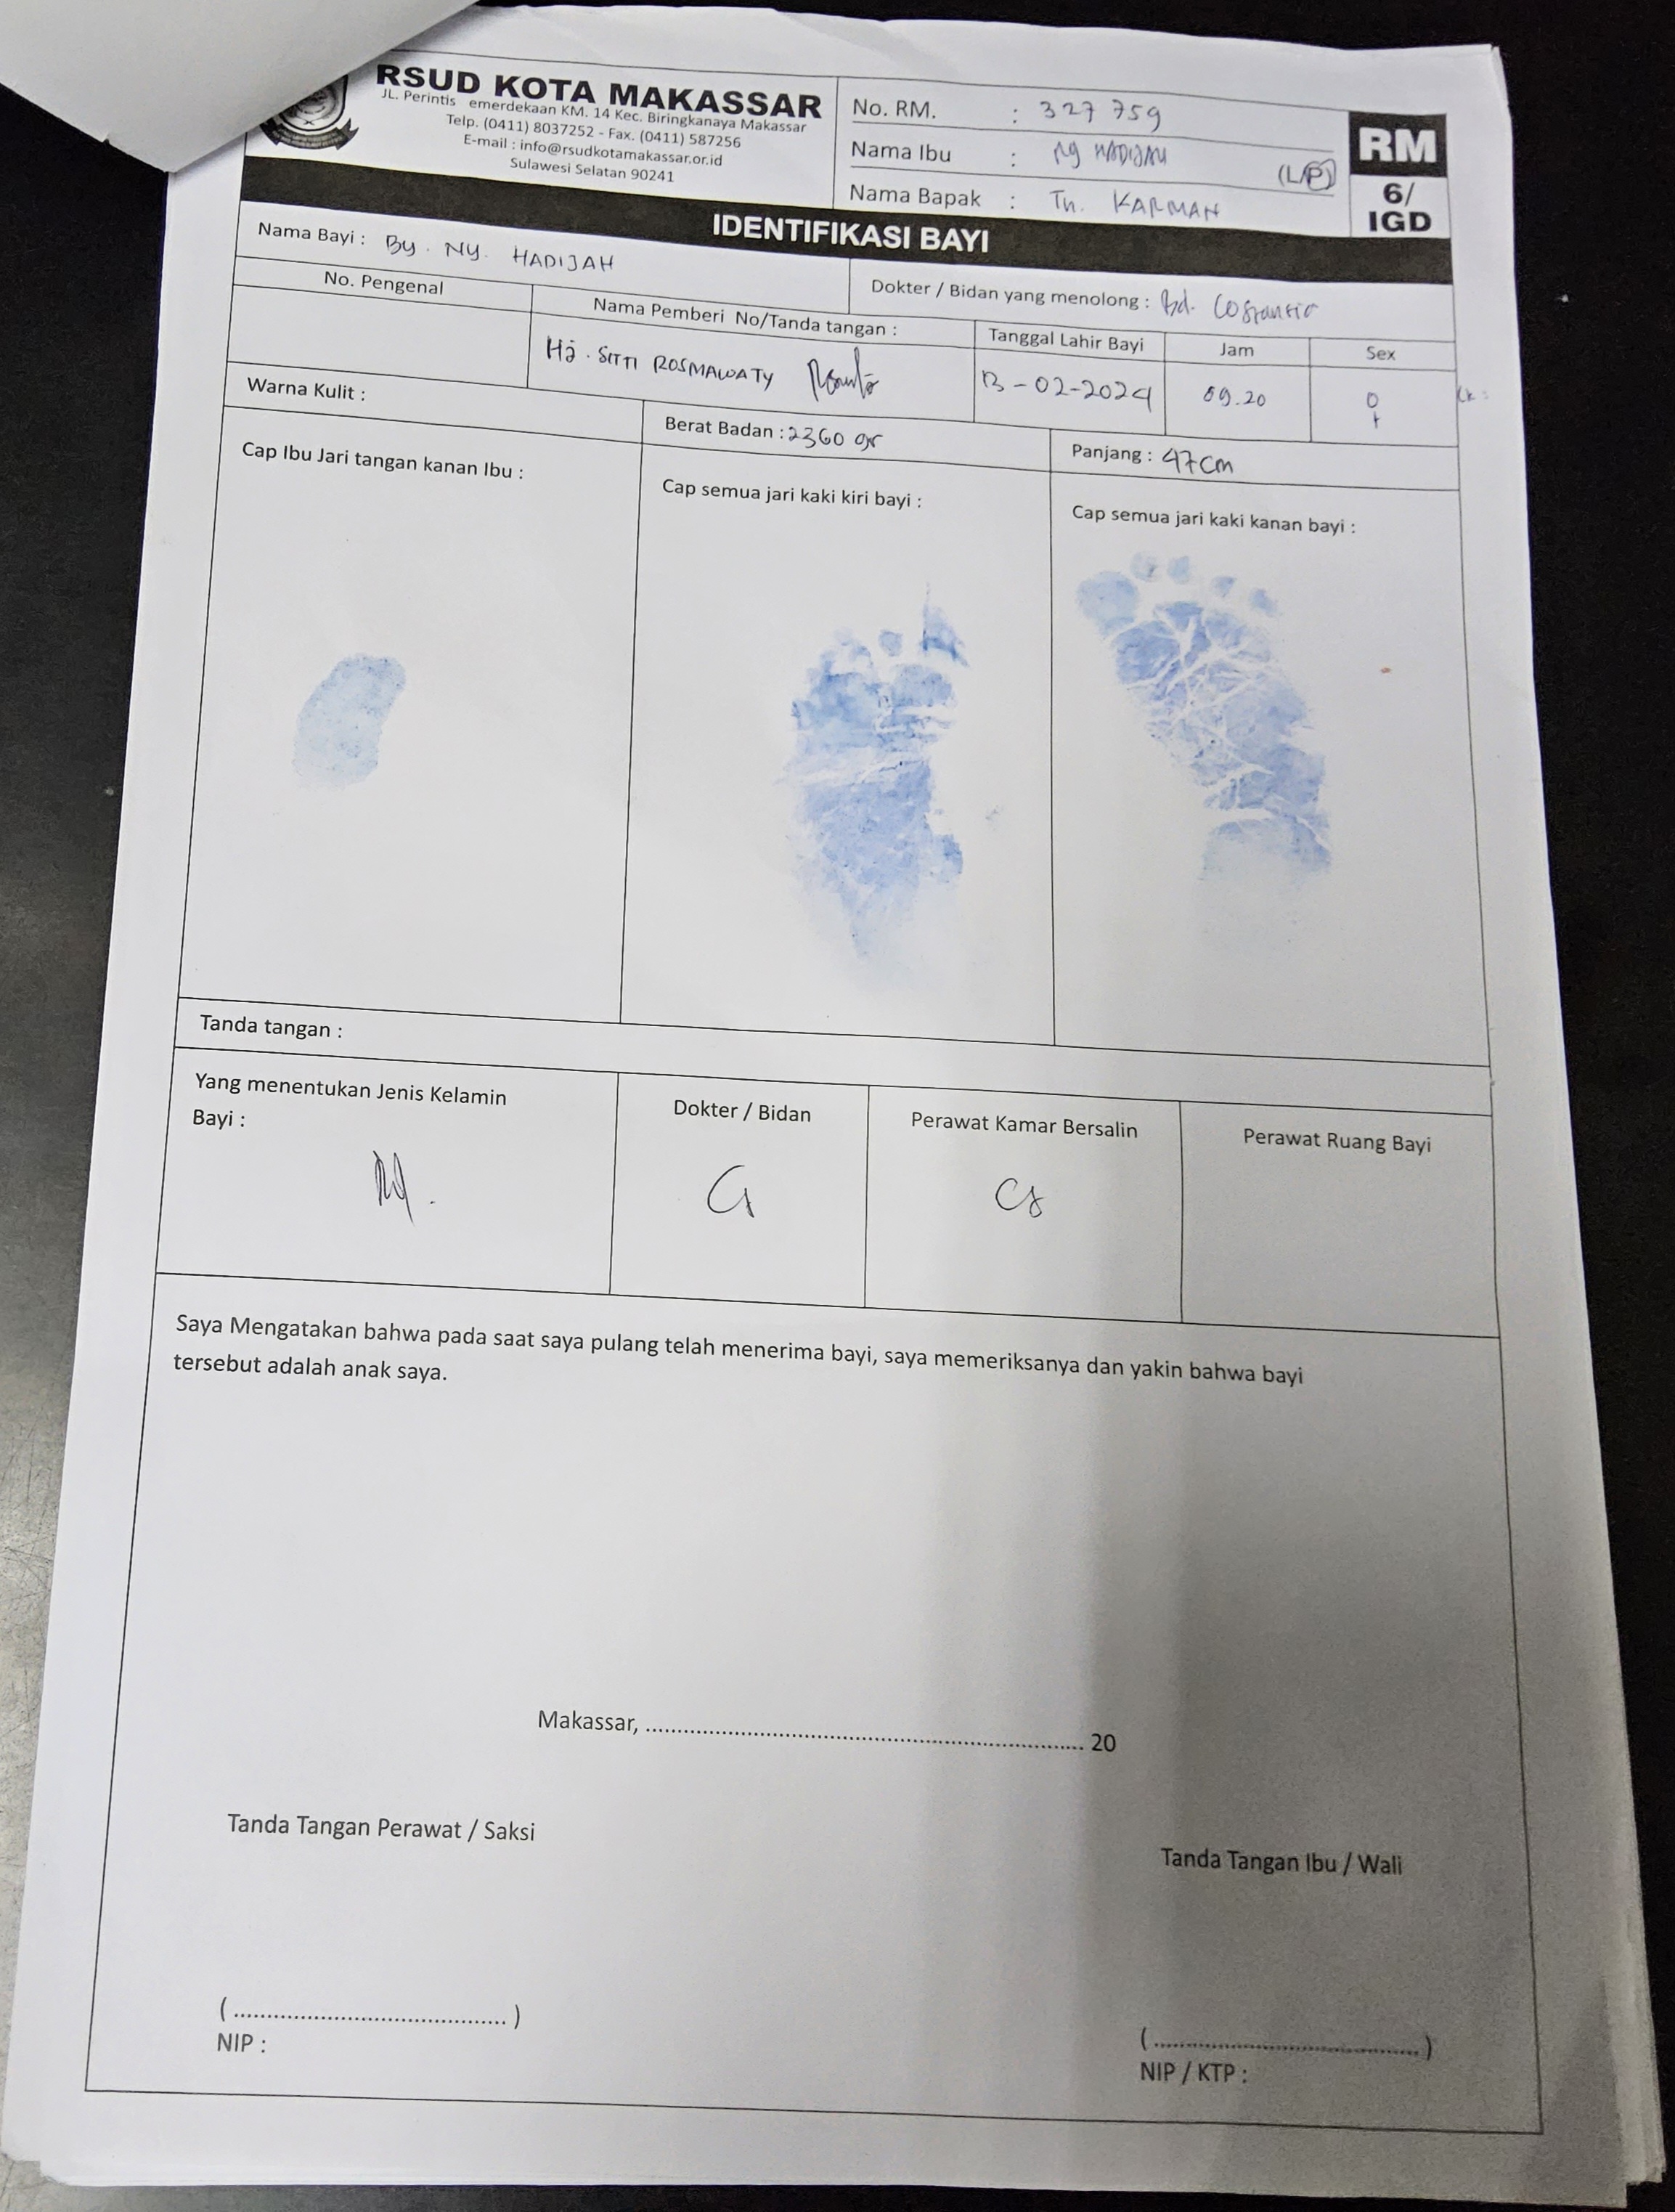 RSUD KOTA MAKASSAR
JL. Perintis emerdekaan KM. 14 Kec. Biringkanaya Makassar
Telp. (0411) 8037252 - Fax. (0411) 587256
E-mail : info@rsudkotamakassar.or.id
Sulawesi Selatan 90241
No. RM. : 327 759
Nama Ibu : Ny HADIJAH
(L/P)
Nama Bapak : Tn. KARMAN
RM
6/
IGD
IDENTIFIKASI BAYI
Nama Bayi : By. NY. HADIJAH
Dokter / Bidan yang menolong : Bd.
No. Pengenal
Nama Pemberi No/Tanda tangan :
Tanggal Lahir Bayi
Jam
Sex
Hj. SITTI ROSMAWATY
13-02-2024
09.20
♀
Warna Kulit :
Berat Badan : 2360 gr
Panjang : 47cm
Cap Ibu Jari tangan kanan Ibu :
Cap semua jari kaki kiri bayi :
Cap semua jari kaki kanan bayi :
Tanda tangan :
Yang menentukan Jenis Kelamin
Bayi :
Dokter / Bidan
Perawat Kamar Bersalin
Perawat Ruang Bayi
Saya Mengatakan bahwa pada saat saya pulang telah menerima bayi, saya memeriksanya dan yakin bahwa bayi
tersebut adalah anak saya.
Makassar, ........................................................................ 20
Tanda Tangan Perawat / Saksi
Tanda Tangan Ibu / Wali
( ............................................. )
NIP :
( ............................................. )
NIP / KTP :